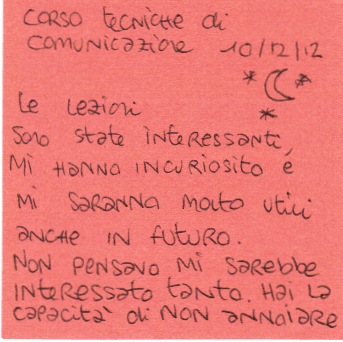 CORSO tecniche di
COMUNICAZIONE 10/12/12
Le Lezioni
sono state interessanti,
Mi HANNO INCURIOSITO e
Mi SARANNO molto utili
ANCHE IN FUTURO.
NON PENSAVO Mi SAREBBE
INTERESSATO tanto. Hai LA
CAPACITÀ di NON ANNOIARE